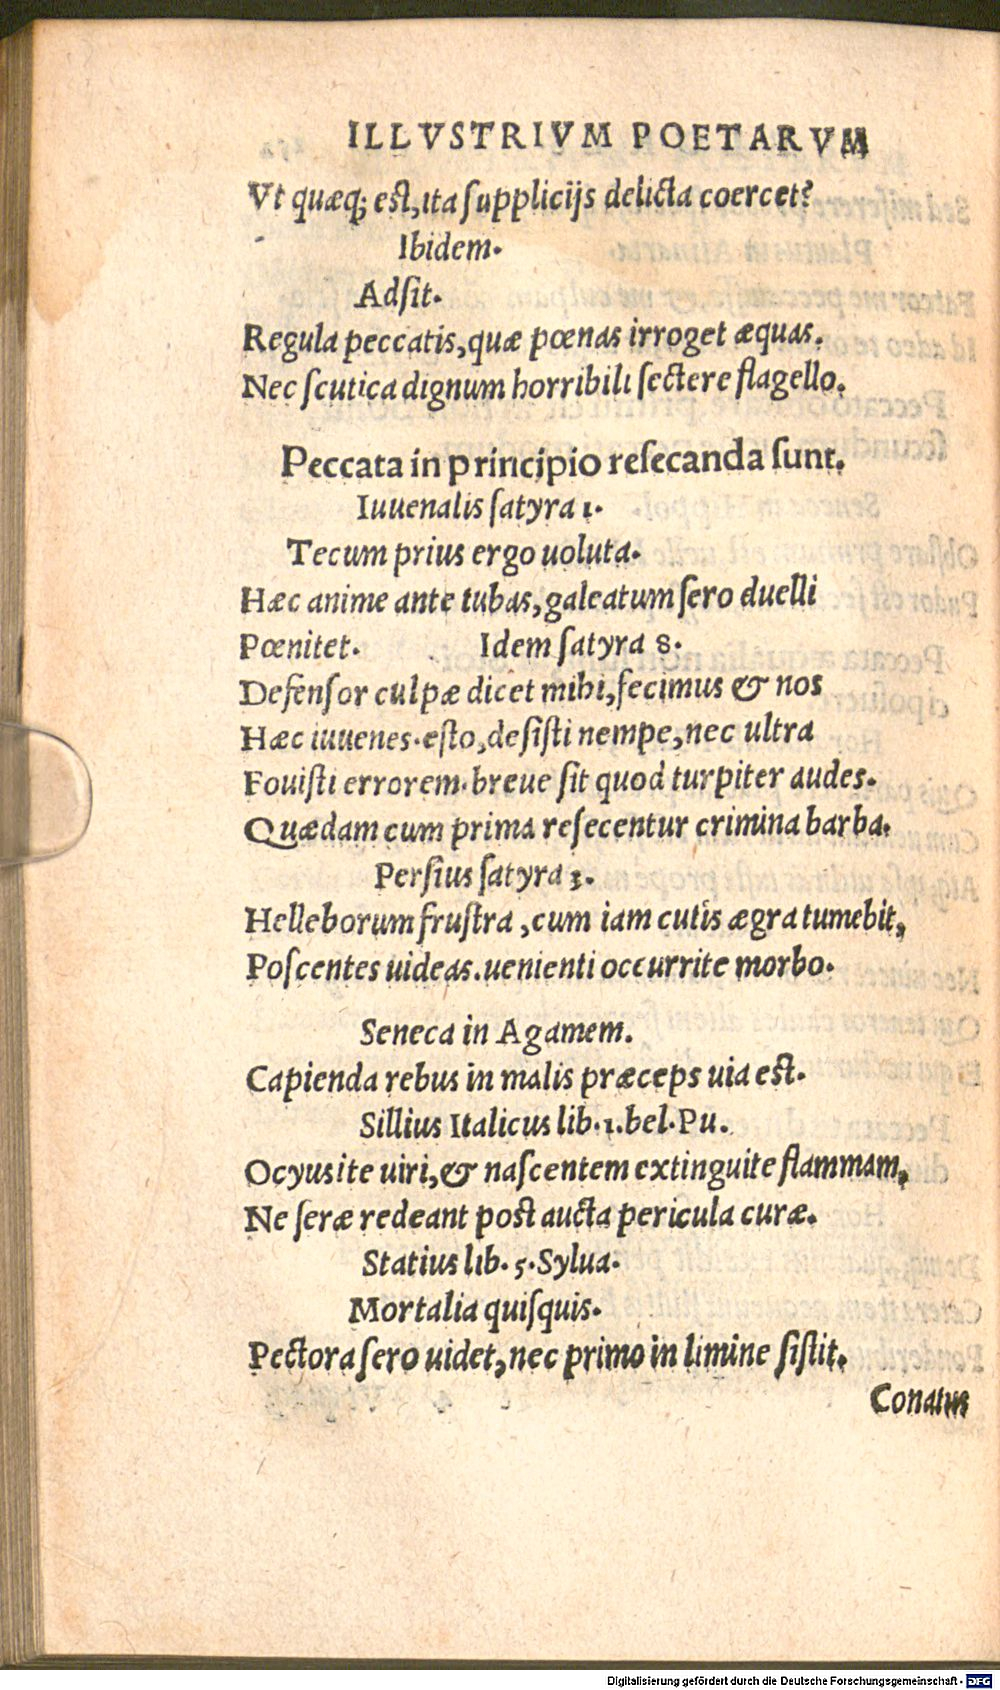 ILLVSTRIVM POETARVM
Vt quæq; est, ita supplicijs delicta coercet?
Ibidem.
Adsit.
Regula peccatis, quæ pœnas irroget æquas.
Nec scutica dignum horribili sectere flagello.
Peccata in principio resecanda sunt.
Iuuenalis satyra 1.
Tecum prius ergo uoluta.
Hæc anime ante tubas, galeatum sero duelli
Pœnitet. Idem satyra 8.
Defensor culpæ dicet mihi, fecimus & nos
Hæc iuuenes. esto, desisti nempe, nec ultra
Fouisti errorem. breue sit quod turpiter audes.
Quædam cum prima resecentur crimina barba.
Persius satyra 3.
Helleborum frustra, cum iam cutis ægra tumebit,
Poscentes uideas. uenienti occurrite morbo.
Seneca in Agamem.
Capienda rebus in malis præceps uia est.
Sillius Italicus lib. 1. bel. Pu.
Ocyus ite uiri, & nascentem extinguite flammam,
Ne seræ redeant post aucta pericula curæ.
Statius lib. 5. Sylua.
Mortalia quisquis.
Pectora sero uidet, nec primo in limine sistit.
Conatus
Digitalisierung gefördert durch die Deutsche Forschungsgemeinschaft - DFG